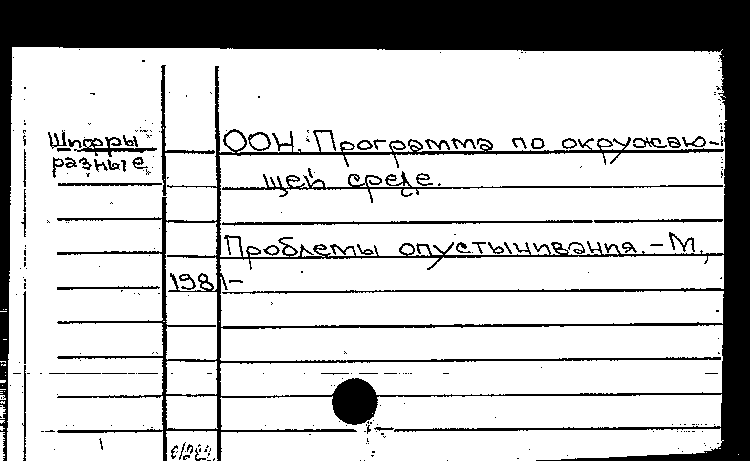 Шифры
разные
ООН. Программа по окружаю-
щей среде.
Проблемы опустынивания. - М.,
1981-